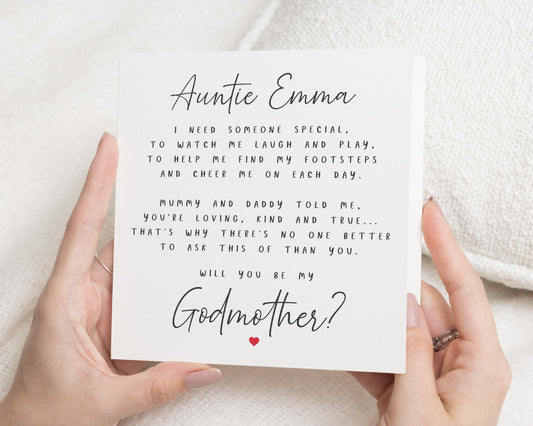 Auntie Emma
I NEED SOMEONE SPECIAL,
TO WATCH ME LAUGH AND PLAY,
TO HELP ME FIND MY FOOTSTEPS
AND CHEER ME ON EACH DAY.
MUMMY AND DADDY TOLD ME,
YOU'RE LOVING, KIND AND TRUE...
THAT'S WHY THERE'S NO ONE BETTER
TO ASK THIS OF THAN YOU.
WILL YOU BE MY
Godmother?